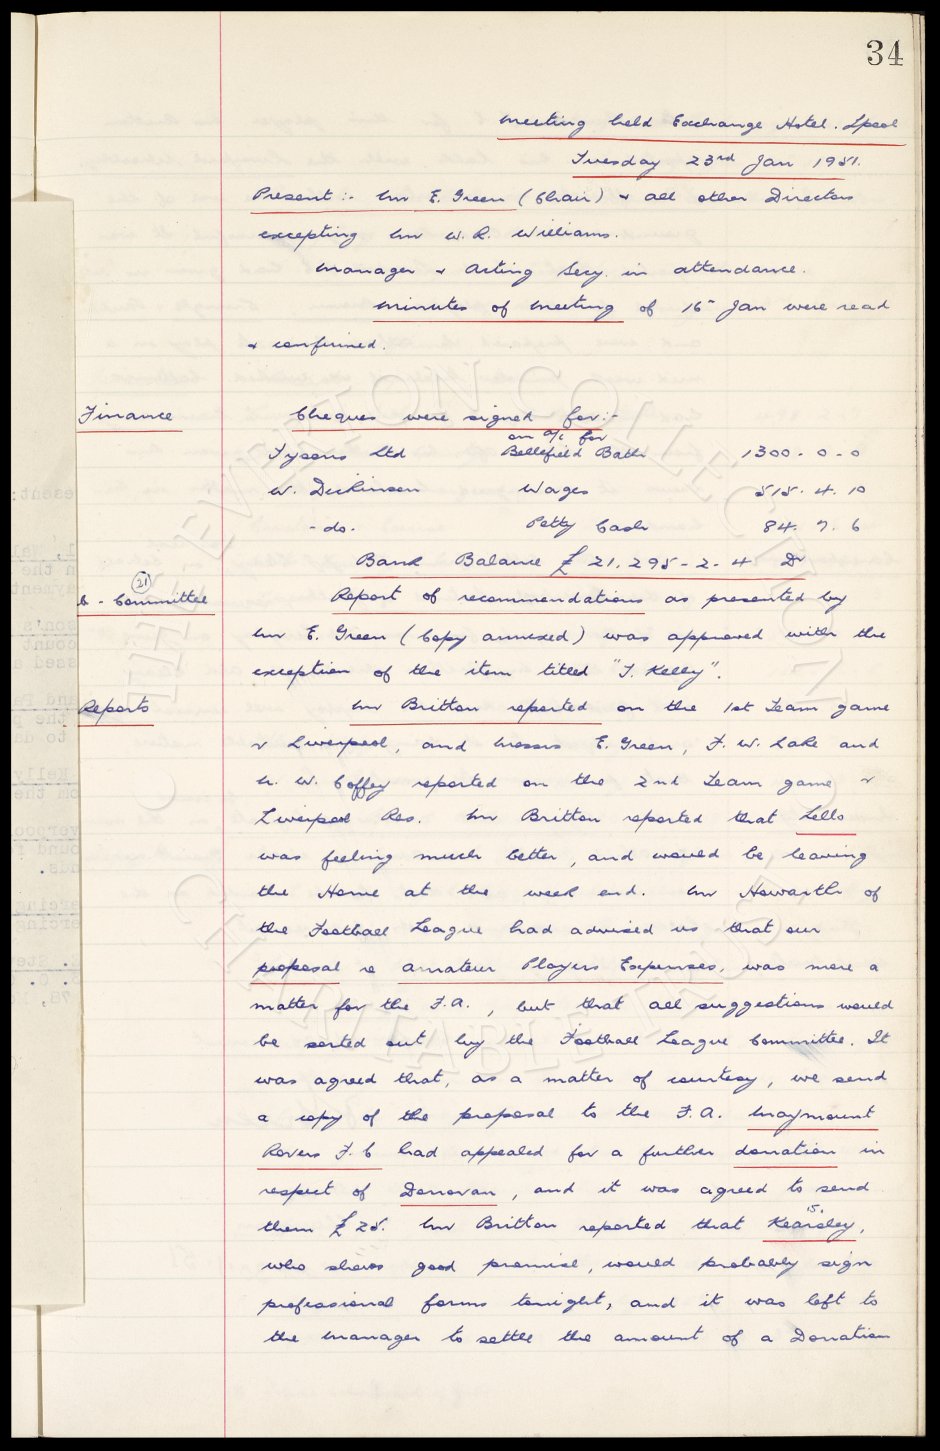 34
Meeting held Exchange Hotel. Lpool
Tuesday 23rd Jan 1951.
Present :- Mr E. Green (Chair) & all other Directors
excepting Mr W. R. Williams.
Manager & Acting Secy. in attendance.
Minutes of Meeting of 16th Jan were read
& confirmed.
Finance
Cheques were signed for:-
on a/c for
Tysons Ltd Bellefield Baths 1300 - 0 - 0
W. Dickinson Wages 515. 4. 10
- do. Petty Cash 84. 7. 6
Bank Balance £21,295 - 2 - 4 Dr
(21)
- Committee
Report of recommendations as presented by
Mr E. Green (Copy annexed) was approved with the
exception of the item titled "T. Kelly".
Reports
Mr Britton reported on the 1st Team game
v Liverpool, and Messrs E. Green, F. W. Lake and
W. Coffey reported on the 2nd Team game v
Liverpool Res. Mr Britton reported that Lello
was feeling much better, and would be leaving
the Home at the week end. Mr Howarth of
the Football League had advised us that our
proposal re Amateur Players Expenses, was more a
matter for the F.A., but that all suggestions would
be sorted out by the Football League Committee. It
was agreed that, as a matter of courtesy, we send
a copy of the proposal to the F.A. Maymount
Rovers F. C had appealed for a further donation in
respect of Donovan, and it was agreed to send
them £25. Mr Britton reported that Kearsley,
who shows good promise, would probably sign
professional forms tonight, and it was left to
the Manager to settle the amount of a Donation
THE EVERTON COLLECTION
CHARITABLE TRUST